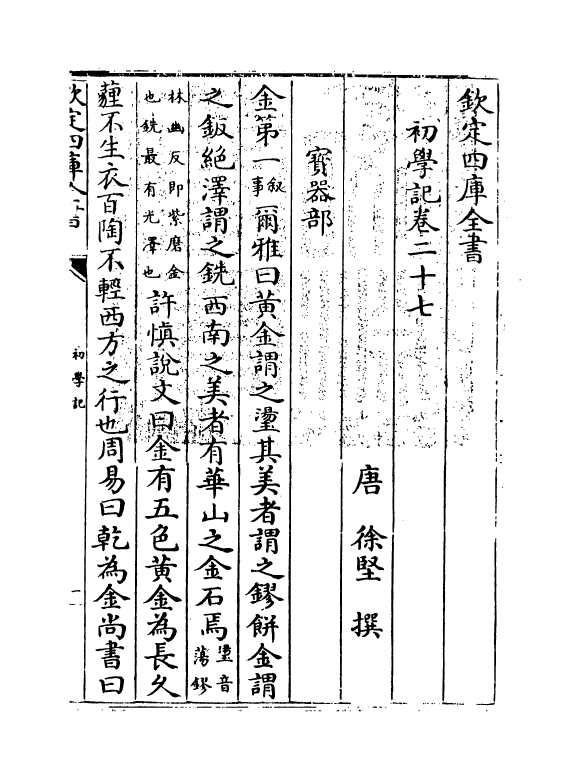 欽定四庫全書
初學記卷二十七
唐 徐堅 撰
寶器部
金第一叙事爾雅曰黃金謂之璗其美者謂之鏐餅金謂
之鈑絶澤謂之銑西南之美者有華山之金石焉璗音蕩鏐
林幽反即紫磨金也銑最有光澤也許慎說文曰金有五色黃金為長久
薶不生衣百陶不輕西方之行也周易曰乾為金尚書曰
欽定四庫全書
初學記